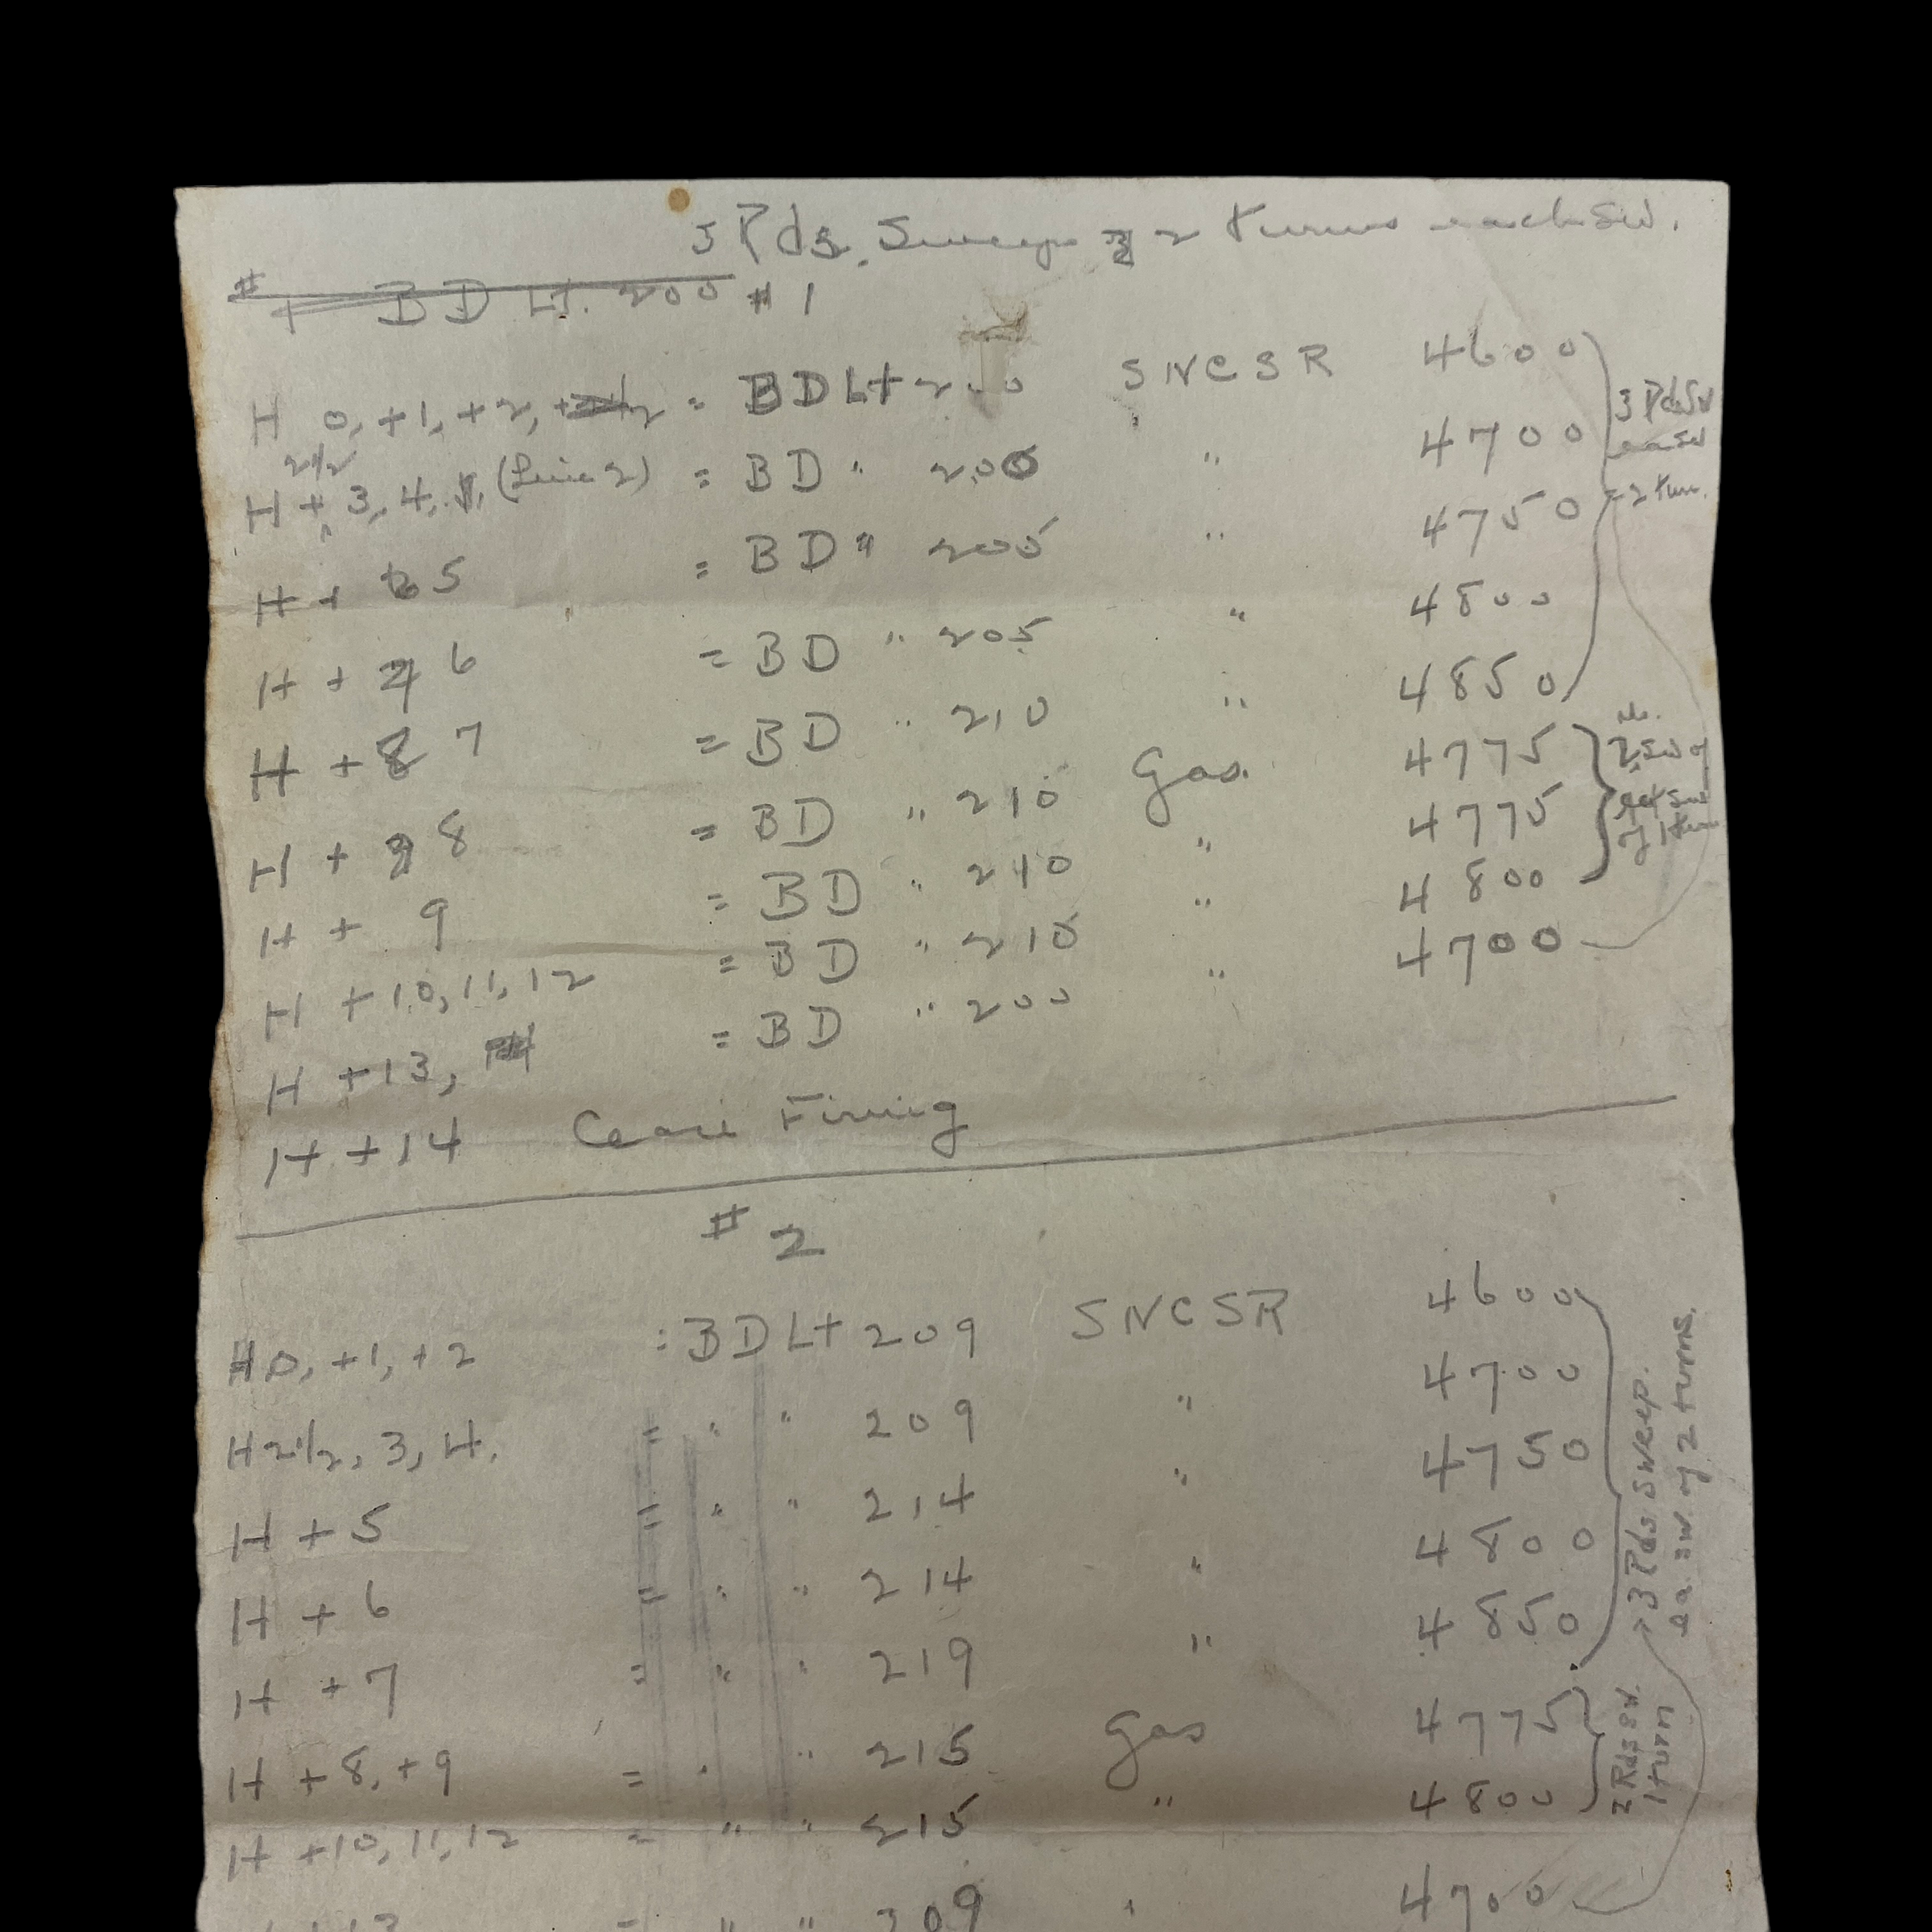 3 Rds. Sweep 2 turns each sw.
# 1 BD Lt. 200 # 1
H 0, +1, +2, = BD Lt 200 SNCSR 4600
H + 2 1/2, 3, 4, (Line 2) = BD " 200 " 4700
H + 5 = BD " 205 " 4750
H + 6 = BD " 205 " 4800
H + 7 = BD " 210 " 4850
3 Rds Sw
ea sw
2 turn.
H + 8 = BD " 210 Gas. 4775
H + 9 = BD " 210 " 4775
H + 10, 11, 12 = BD " 210 " 4800
H + 13, = BD " 200 " 4700
H + 14 Cease Firing
# 2
H 0, +1, +2 = BD Lt 209 SNCSR 4600
H 2 1/2, 3, 4. = " " 209 " 4700
H + 5 = " " 214 " 4750
H + 6 = " " 214 " 4800
H + 7 = " " 219 " 4850
3 Rds sweep.
ea. sw. of 2 turns.
H + 8, +9 = " " 215 Gas 4775
H + 10, 11, 12 = " " 215 " 4800
2 Rds sw.
1 turn
= " " 209 " 4700